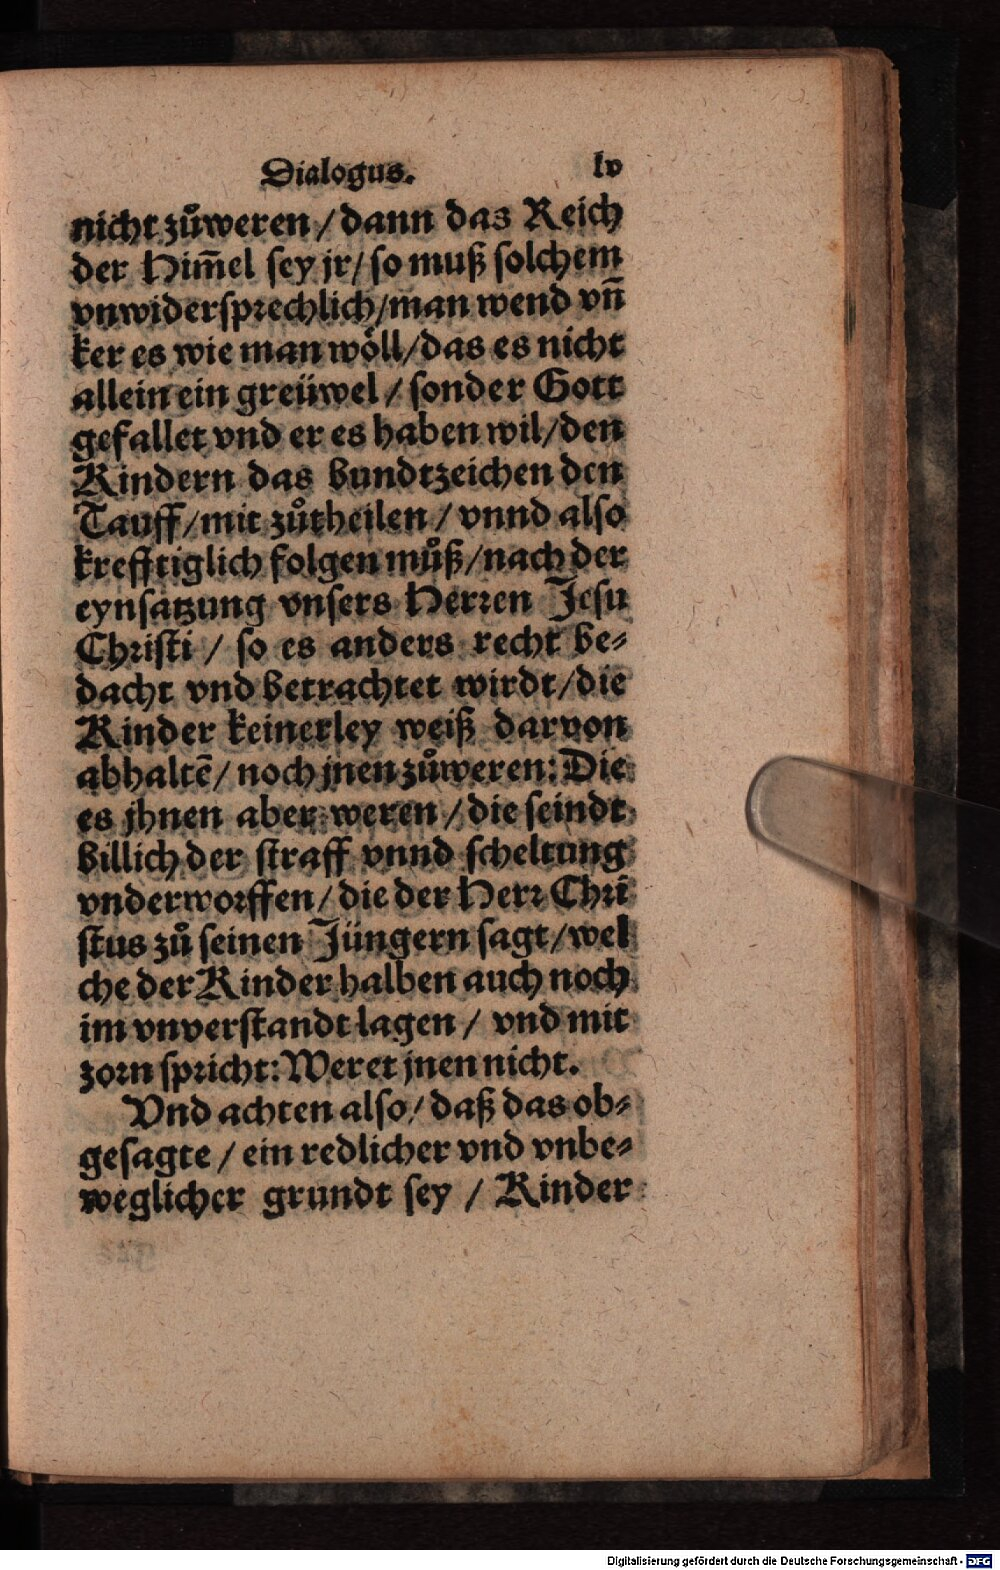 Dialogus. lv
nicht zůweren / dann das Reich
der Him̃el sey jr / so muß solchem
vnwidersprechlich / man wend vñ
ker es wie man wöll / das es nicht
allein ein greüwel / sonder Gott
gefallet vnd er es haben wil / den
Kindern das bundtzeichen den
Tauff / mit zůtheilen / vnnd also
krefftiglich folgen můß / nach der
eynsatzung vnsers Herren Jesu
Christi / so es anders recht be-
dacht vnd betrachtet wirdt / die
Kinder keinerley weiß darvon
abhaltē / noch jnen zůweren: Die
es jhnen aber weren / die seindt
billich der straff vnnd scheltung
vnderworffen / die der Herr Chri
stus zů seinen Jüngern sagt / wel
che der Kinder halben auch noch
im vnverstandt lagen / vnd mit
zorn spricht: Weret jnen nicht.
Vnd achten also / daß das ob-
gesagte / ein redlicher vnd vnbe-
weglicher grundt sey / Kinder
Digitalisierung gefördert durch die Deutsche Forschungsgemeinschaft - DFG